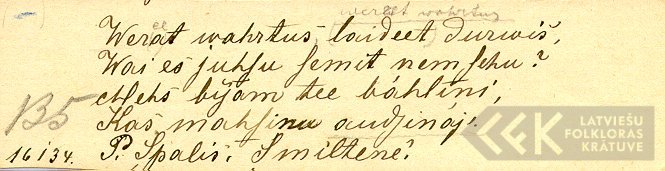 wereet wahrtus
Werat wahrtus laideet durwis,
Wai es juhsu semit nemschu?
Mehs bijam tee bahlini,
Kas mahsinu audzinaj.
B5
16134. P. Spalis. Smiltenē.
LATVIEŠU
FOLKLORAS
KRĀTUVE
LFK